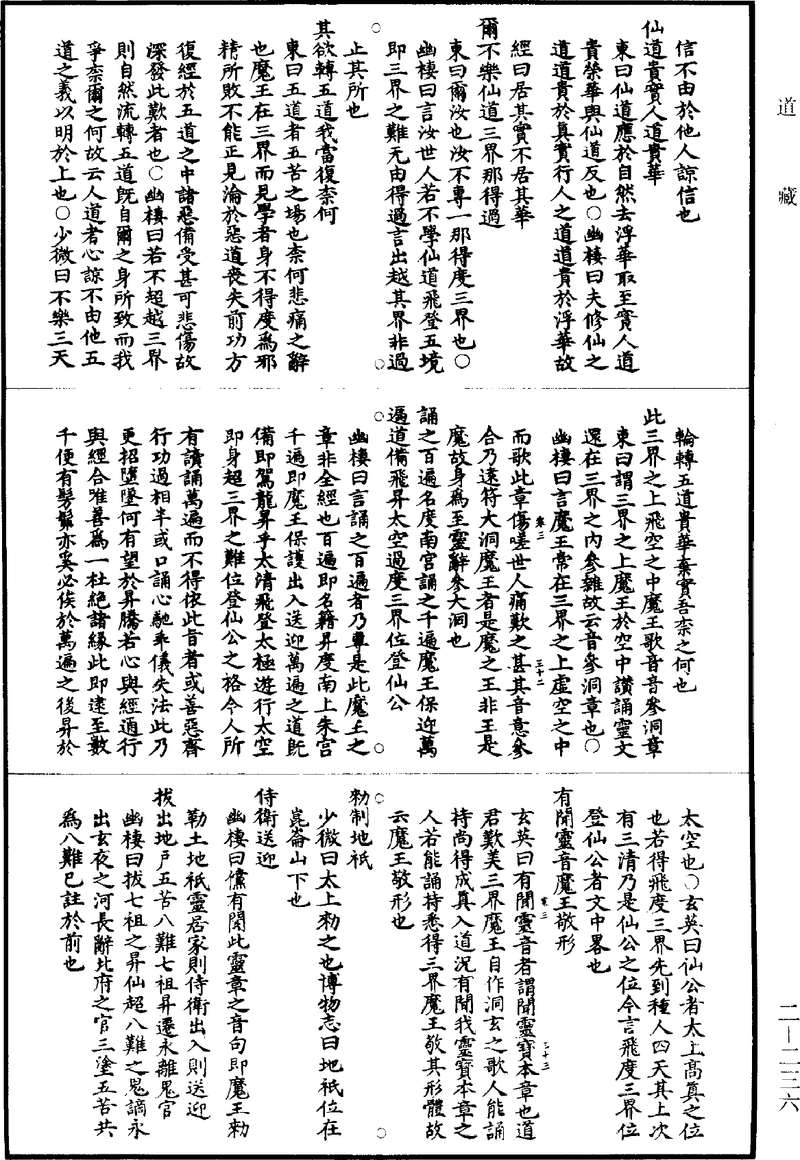 道藏
二—二三六
信不由於他人諒信也
仙道貴實人道貴華
東曰仙道應於自然去浮華取至實人道
貴榮華與仙道反也○幽棲曰夫修仙之
道道貴於真實行人之道道貴於浮華故
經曰居其實不居其華
爾不樂仙道三界那得過
東曰爾汝也汝不專一那得度三界也○
幽棲曰言汝世人若不學仙道飛登五境
即三界之難无由得過言出越其界非過
止其所也
其欲轉五道我當復柰何
東曰五道者五苦之場也柰何悲痛之辭
也魔王在三界而見學者身不得度為邪
精所敗不能正見淪於惡道喪失前功方
復經於五道之中諸惡備受甚可悲傷故
深發此歎者也○幽棲曰若不超越三界
則自然流轉五道旣自爾之身所致而我
爭柰爾之何故云人道者心諒不由他五
道之義以明於上也○少微曰不樂三天
輪轉五道貴華棄實吾柰之何也
此三界之上飛空之中魔王歌音音參洞章
東曰謂三界之上魔王於空中讚誦靈文
還在三界之內參雜故云音參洞章也○
幽棲曰言魔王常在三界之上虛空之中
卷三
三十二
而歌此章傷嗟世人痛歎之甚其音意參
合乃遠符大洞魔王者是魔之王非王是
魔故身為至靈辭參大洞也
誦之百遍名度南宮誦之千遍魔王保迎萬
遍道備飛昇太空過度三界位登仙公
幽棲曰言誦之百遍者乃專是此魔王之
章非全經也百遍即名籍昇度南上朱宮
千遍即魔王保護出入送迎萬遍之道旣
備即駕龍昇乎太清飛登太極遊行太空
即身超三界之難位登仙公之格令人所
有讀誦萬遍而不得依此旨者或善惡齊
行功過相半或口誦心馳乖儀失法此乃
更招墮墜何有望於昇騰若心與經通行
與經合唯善為一杜絕諸緣此即遠至數
千便有髣髴亦奚必俟於萬遍之後昇於
太空也○玄英曰仙公者太上高真之位
也若得飛度三界先到種人四天其上次
有三清乃是仙公之位今言飛度三界位
登仙公者文中畧也
有聞靈音魔王敬形
卷三
三十三
玄英曰有聞靈音者謂聞靈寶本章也道
君歎美三界魔王自作洞玄之歌人能誦
持尚得成真入道況有聞我靈寶本章之
人若能誦持悉得三界魔王敬其形體故
云魔王敬形也
勑制地祇
少微曰太上勑之也博物志曰地祇位在
崑崙山下也
侍衛送迎
幽棲曰儻有聞此靈章之音句即魔王勑
勒土地祇靈居家則侍衛出入則送迎
拔出地戶五苦八難七祖昇遷永離鬼官
幽棲曰拔七祖之昇仙超八難之鬼謫永
出玄夜之河長辭北府之官三塗五苦共
為八難已註於前也